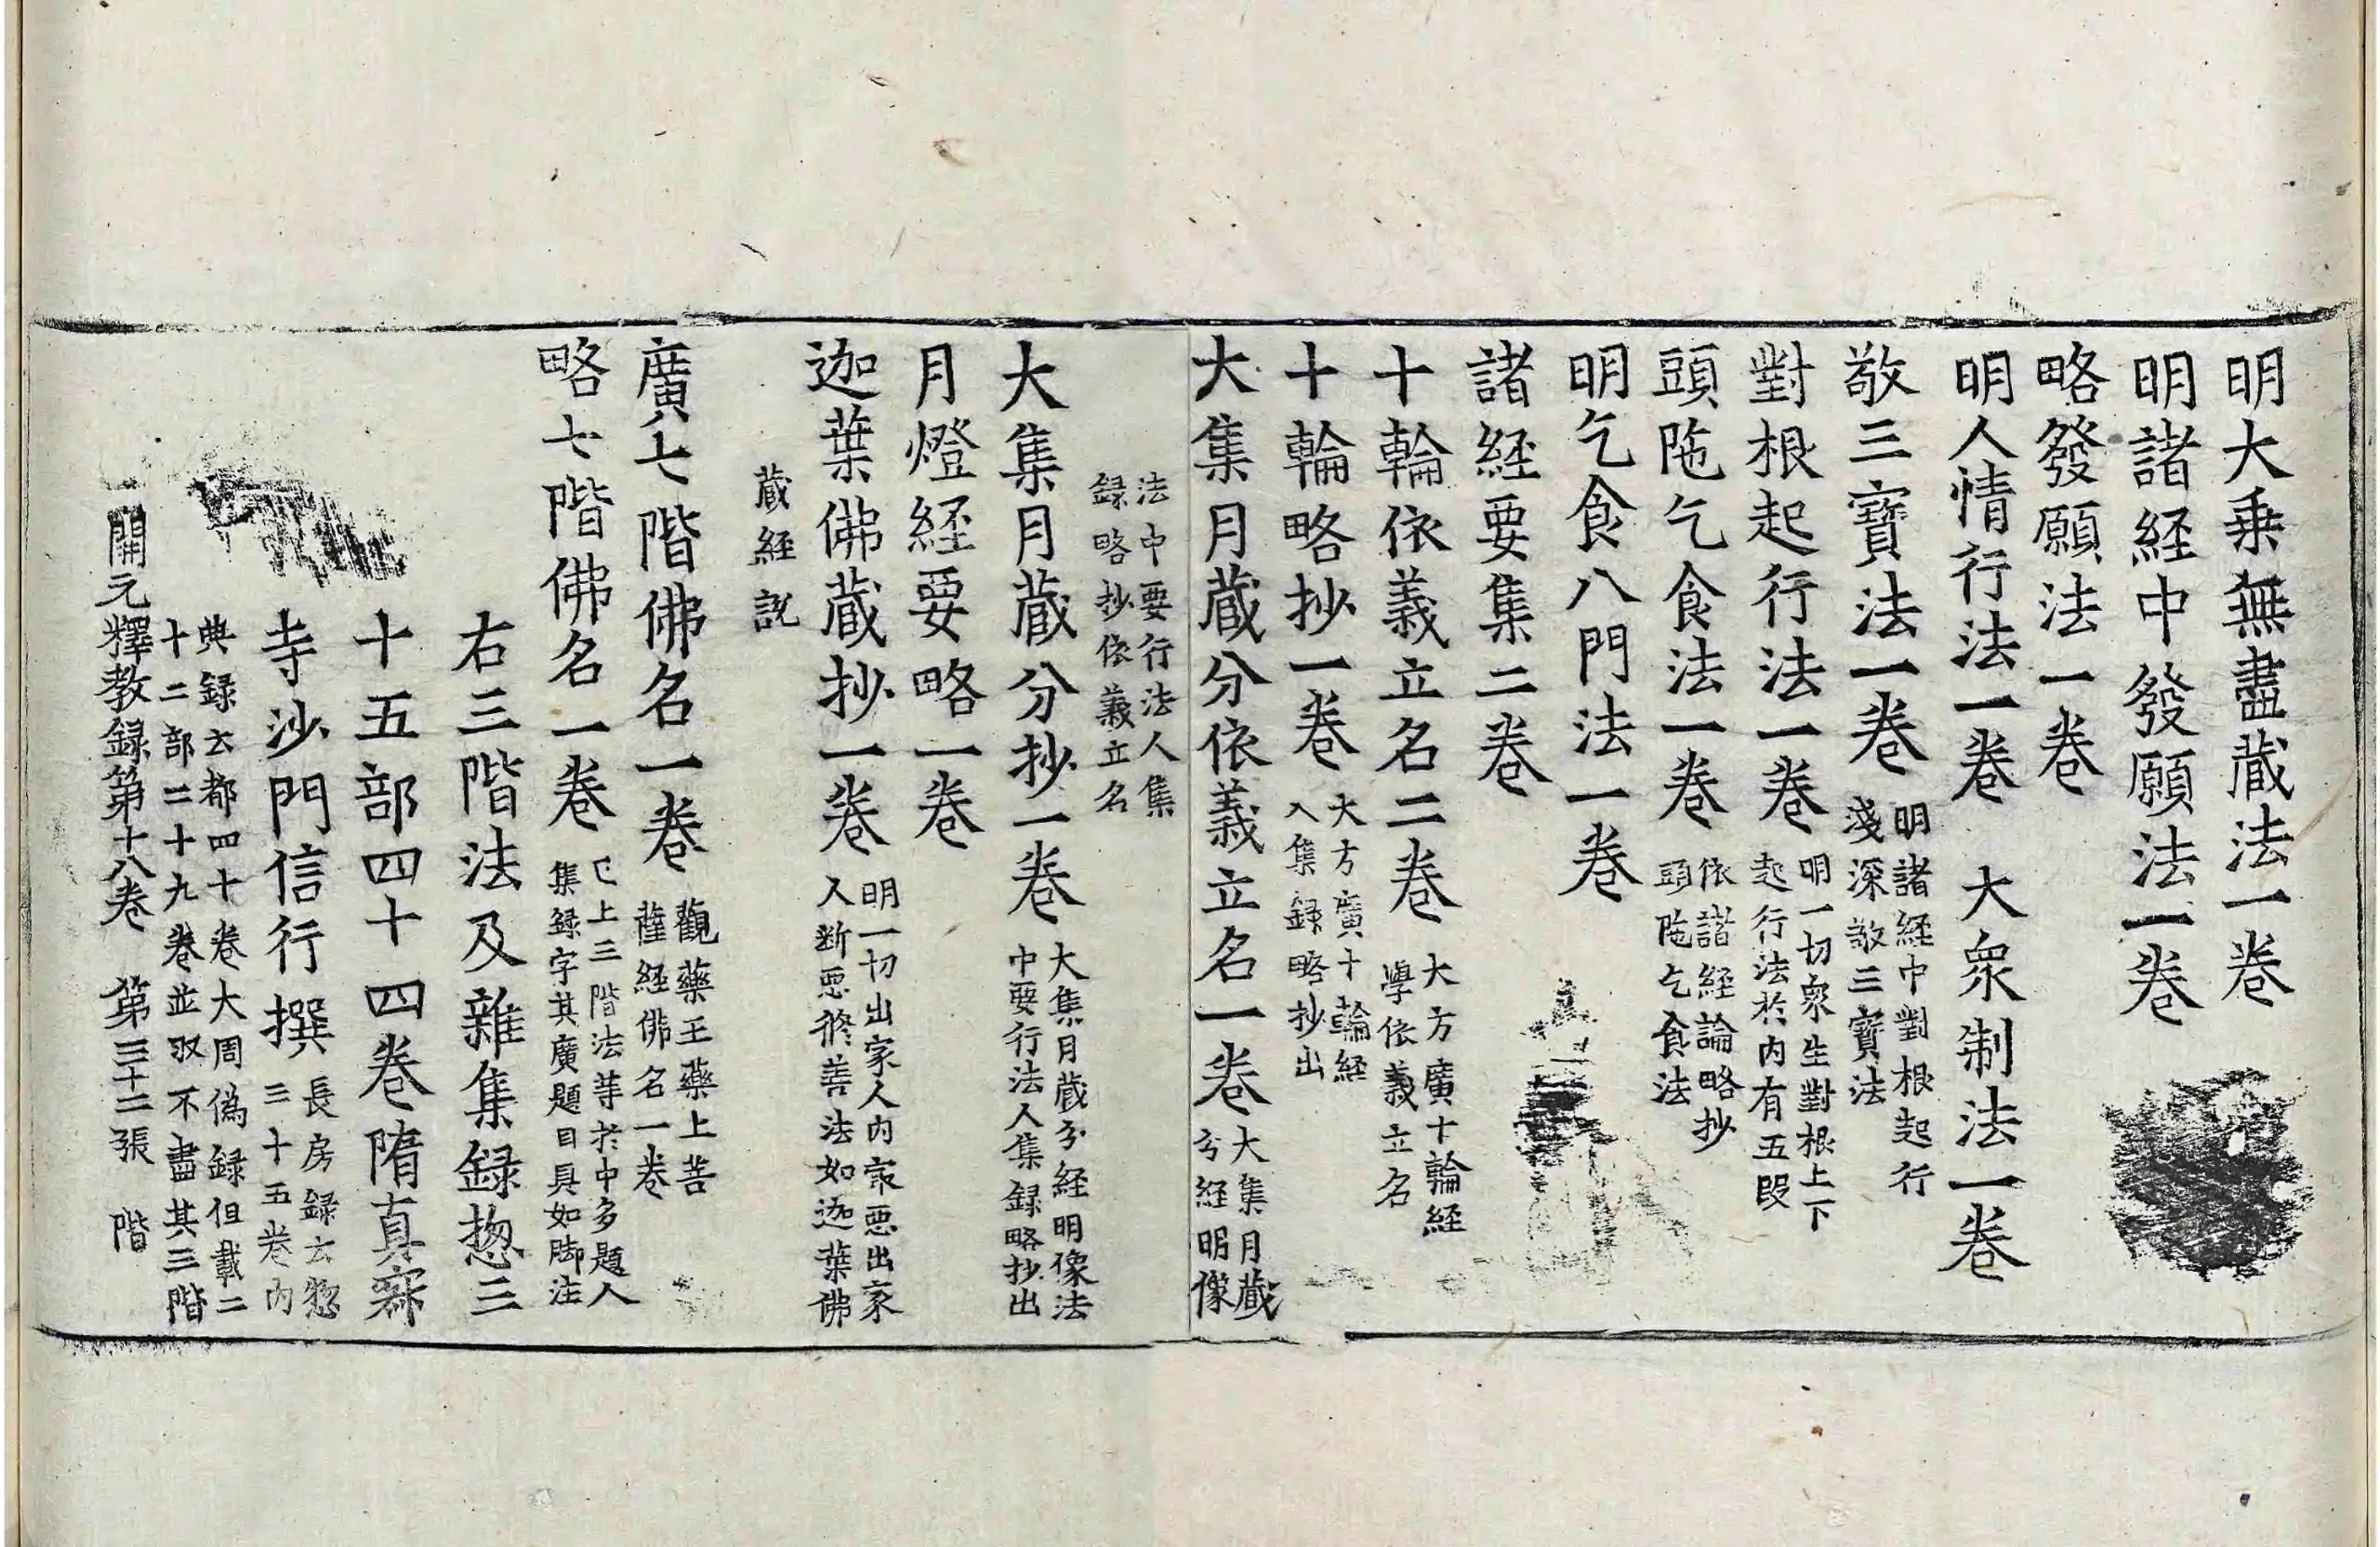 明大乗無盡蔵法一卷
明諸経中發願法一卷
略發願法一卷
明人情行法一卷　大衆制法一卷
敬三寶法一卷　明諸経中對根起行
淺深敬三寳法
對根起行法一卷　明一切衆生對根上下
起行法於内有五段
頭陁乞食法一卷　依諸経論略抄
頭陁乞食法
明乞食八門法一卷
諸経要集二卷
十輪依義立名二卷　大方廣十輪経
學依義立名
十輪略抄一卷　大方廣十輪経
入集録略抄出
大集月蔵分依義立名一卷　大集月蔵
分経明像
法中要行法人集
録略抄依義立名
大集月蔵分抄一卷　大集月蔵分経明像法
中要行法人集録略抄出
月燈経要略一卷
迦葉佛蔵抄一卷　明一切出家人内㝡悪出家
人断悪修善法如迦葉佛
蔵経説
廣七階佛名一卷　觀藥王藥上菩
薩経佛名一卷
略七階佛名一卷　已上三階法等於中多題人
集録字其廣題目具如脚注
右三階法及雜集録揔三
十五部四十四卷隋真寂
寺沙門信行撰　長房録云揔
三十五卷内
典録云都四十卷大周偽録但載二
十二部二十九卷並収不盡其三階
開元釋教録第十八卷　第三十二張　階